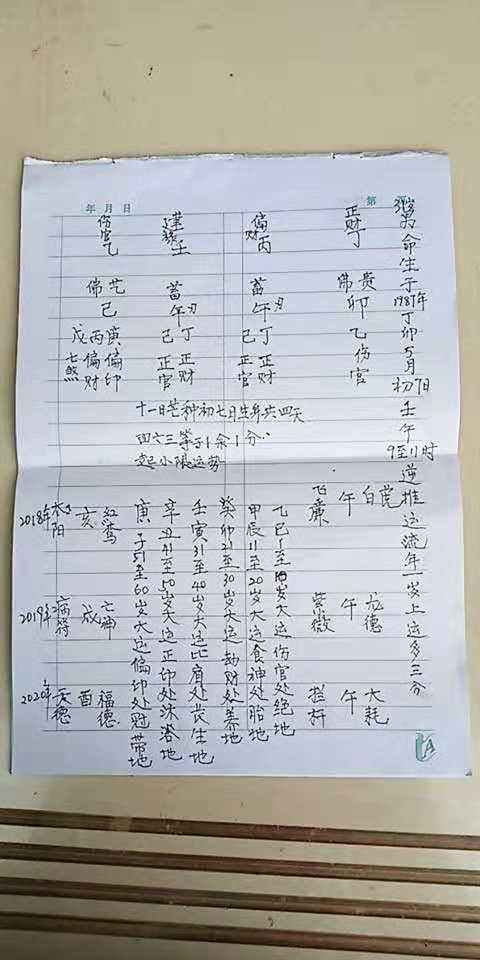 年 月 日
第
命生于1987年丁卯5月初7日壬午9至11时逆推运流年一岁上运多三分
正财丁
贵佛
卯
乙伤官
偏财丙
蓄
午
丁己
正财
正官
壬
蓄
午
丁己
正财
正官
伤官乙
艺佛
己
庚丙戊
偏印
偏财
七煞
十一日芒种初七日生年共四天
四六三等于1余1分
起小限运势
白虎
午
飞廉
龙德
午
紫微
大耗
午
拦杆
乙巳1至10岁大运伤官处绝地
甲辰11至20岁大运食神处胎地
癸卯21至30岁大运劫财处养地
壬寅31至40岁大运比肩处长生地
辛丑41至50岁大运正印处沐浴地
庚子51至60岁大运偏印处冠带地
红鸾
亥
2018年太阳
亡神
戌
2019年病符
福德
酉
2020年天德